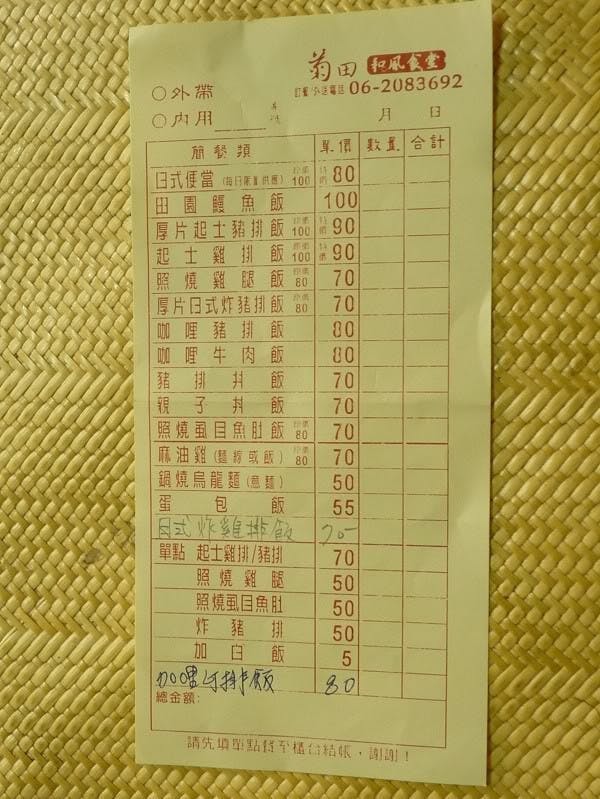 菊田 和風食堂
訂餐/外送電話 06-2083692
○外帶
○內用 月 日
簡餐類 單價 數量 合計
日式便當(每日限量供應) 原價100 特價80
田園鰻魚飯 100
厚片起士豬排飯 原價100 特價90
起士雞排飯 原價100 特價90
照燒雞腿飯 原價80 70
厚片日式炸豬排飯 原價80 70
咖哩豬排飯 80
咖哩牛肉飯 80
豬排丼飯 70
親子丼飯 70
照燒虱目魚肚飯 原價80 70
麻油雞(麵線或飯) 原價80 70
鍋燒烏龍麵(意麵) 50
蛋包飯 55
日式炸雞排飯 70
單點 起士雞排/豬排 70
照燒雞腿 50
照燒虱目魚肚 50
炸豬排 50
加白飯 5
排飯 80
總金額:
請先填單點餐至櫃台結帳,謝謝!